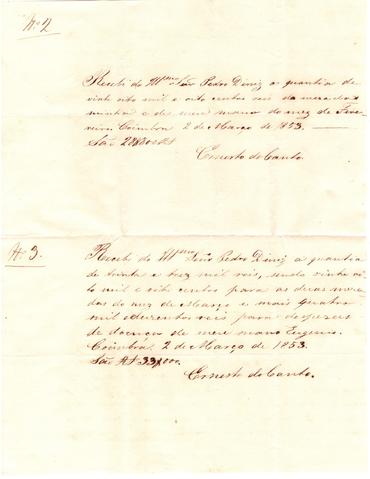 Nº 2
Recebi do Illmo Snr Pedro Diniz a quantia de
vinte oito mil e oito centos reis da mezada
minha e de meu mano do mez de Feve-
reiro. Coimbra 2 de Março de 1853.
São 28800 rs
Ernesto do Canto.
Nº 3.
Recebi do Illmo Snr Pedro Diniz a quantia
de trinta e trez mil reis, sendo vinte oi-
to mil e oito centos para as duas meza-
das do mez de Março e mais quatro
mil e duzentos reis para despezas
de doença de meu mano Eugenio.
Coimbra 2 de Março de 1853.
São Rs 33,000.
Ernesto do Canto.